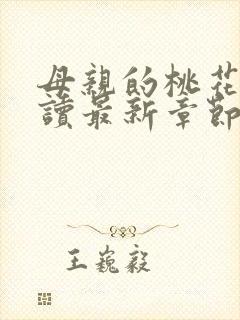 母親的桃花
讀最新章節
王巍毅